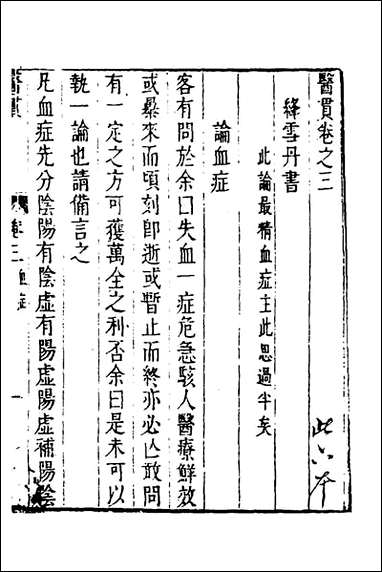 醫貫卷之三
絳雪丹書
此論最精血症主此思過半矣
論血症
客有問於余曰失血一症危急駭人醫療鮮效
或暴來而頃刻卽逝或暫止而終亦必亾敢問
有一定之方可獲萬全之利否余曰是未可以
執一論也請備言之
凡血症先分陰陽有陰虛有陽虛陽虛補陽陰
醫貫
卷三 血症
一